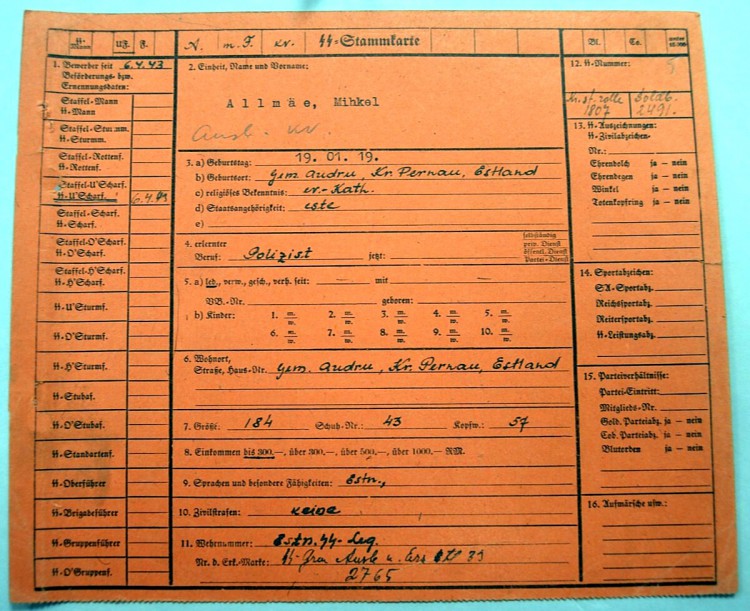 ϟϟ-Mann
UF. F.
A. m. F. kv. ϟϟ-Stammkarte
Bl. Co. unter 10.000
1. Bewerber seit 6.4.43
Beförderungs- bzw.
Ernennungsdaten:
Staffel-Mann
ϟϟ-Mann
Staffel-Sturmm.
ϟϟ-Sturmm.
Staffel-Rottenf.
ϟϟ-Rottenf.
Staffel-U'Scharf.
ϟϟ-U'Scharf. 6.4.43
Staffel-Scharf.
ϟϟ-Scharf.
Staffel-O'Scharf.
ϟϟ-O'Scharf.
Staffel-H'Scharf.
ϟϟ-H'Scharf.
ϟϟ-U'Sturmf.
ϟϟ-O'Sturmf.
ϟϟ-H'Sturmf.
ϟϟ-Stubaf.
ϟϟ-O'Stubaf.
ϟϟ-Standartenf.
ϟϟ-Oberführer
ϟϟ-Brigadeführer
ϟϟ-Gruppenführer
ϟϟ-O'Gruppenf.
2. Einheit, Name und Vorname:
Allmäe, Mihkel
kv.
3. a) Geburtstag: 19. 01. 19.
b) Geburtsort: Gem. Audru, Kr. Pernau, Estland
c) religiöses Bekenntnis: ev.-Kath.
d) Staatsangehörigkeit: este
e)
4. erlernter
Beruf: Polizist jetzt:
selbständig
priv. Dienst
öffentl. Dienst
Partei-Dienst
5. a) led., verw., gesch., verh. seit: mit
VB.-Nr. geboren:
b) Kinder: 1. m/w. 2. m/w. 3. m/w. 4. m/w. 5. m/w.
6. m/w. 7. m/w. 8. m/w. 9. m/w. 10. m/w.
6. Wohnort,
Straße, Haus-Nr. Gem. Audru, Kr. Pernau, Estland
7. Größe: 184 Schuh-Nr.: 43 Kopfw.: 57
8. Einkommen bis 300.—, über 300.—, über 500.—, über 1000.— RM.
9. Sprachen und besondere Fähigkeiten: Estn.,
10. Zivilstrafen: keine
11. Wehrnummer: Estn. ϟϟ-Leg.
Nr. d. Erk.-Marke: ϟϟ-Gren. Ausb. u. Ers. Btl 33
2765
12. ϟϟ-Nummer: 5
Kr. st. rolle Soldb.
1807 2491.
13. ϟϟ-Auszeichnungen:
ϟϟ-Zivilabzeichen-
Nr.:
Ehrendolch ja — nein
Ehrendegen ja — nein
Winkel ja — nein
Totenkopfring ja — nein
14. Sportabzeichen:
SA-Sportabz.
Reichssportabz.
Reitersportabz.
ϟϟ-Leistungsabz.
15. Parteiverhältnisse:
Partei-Eintritt:
Mitglieds-Nr.
Gold. Parteiabz. ja — nein
Cob. Parteiabz. ja — nein
Blutorden ja — nein
16. Aufmärsche usw.: